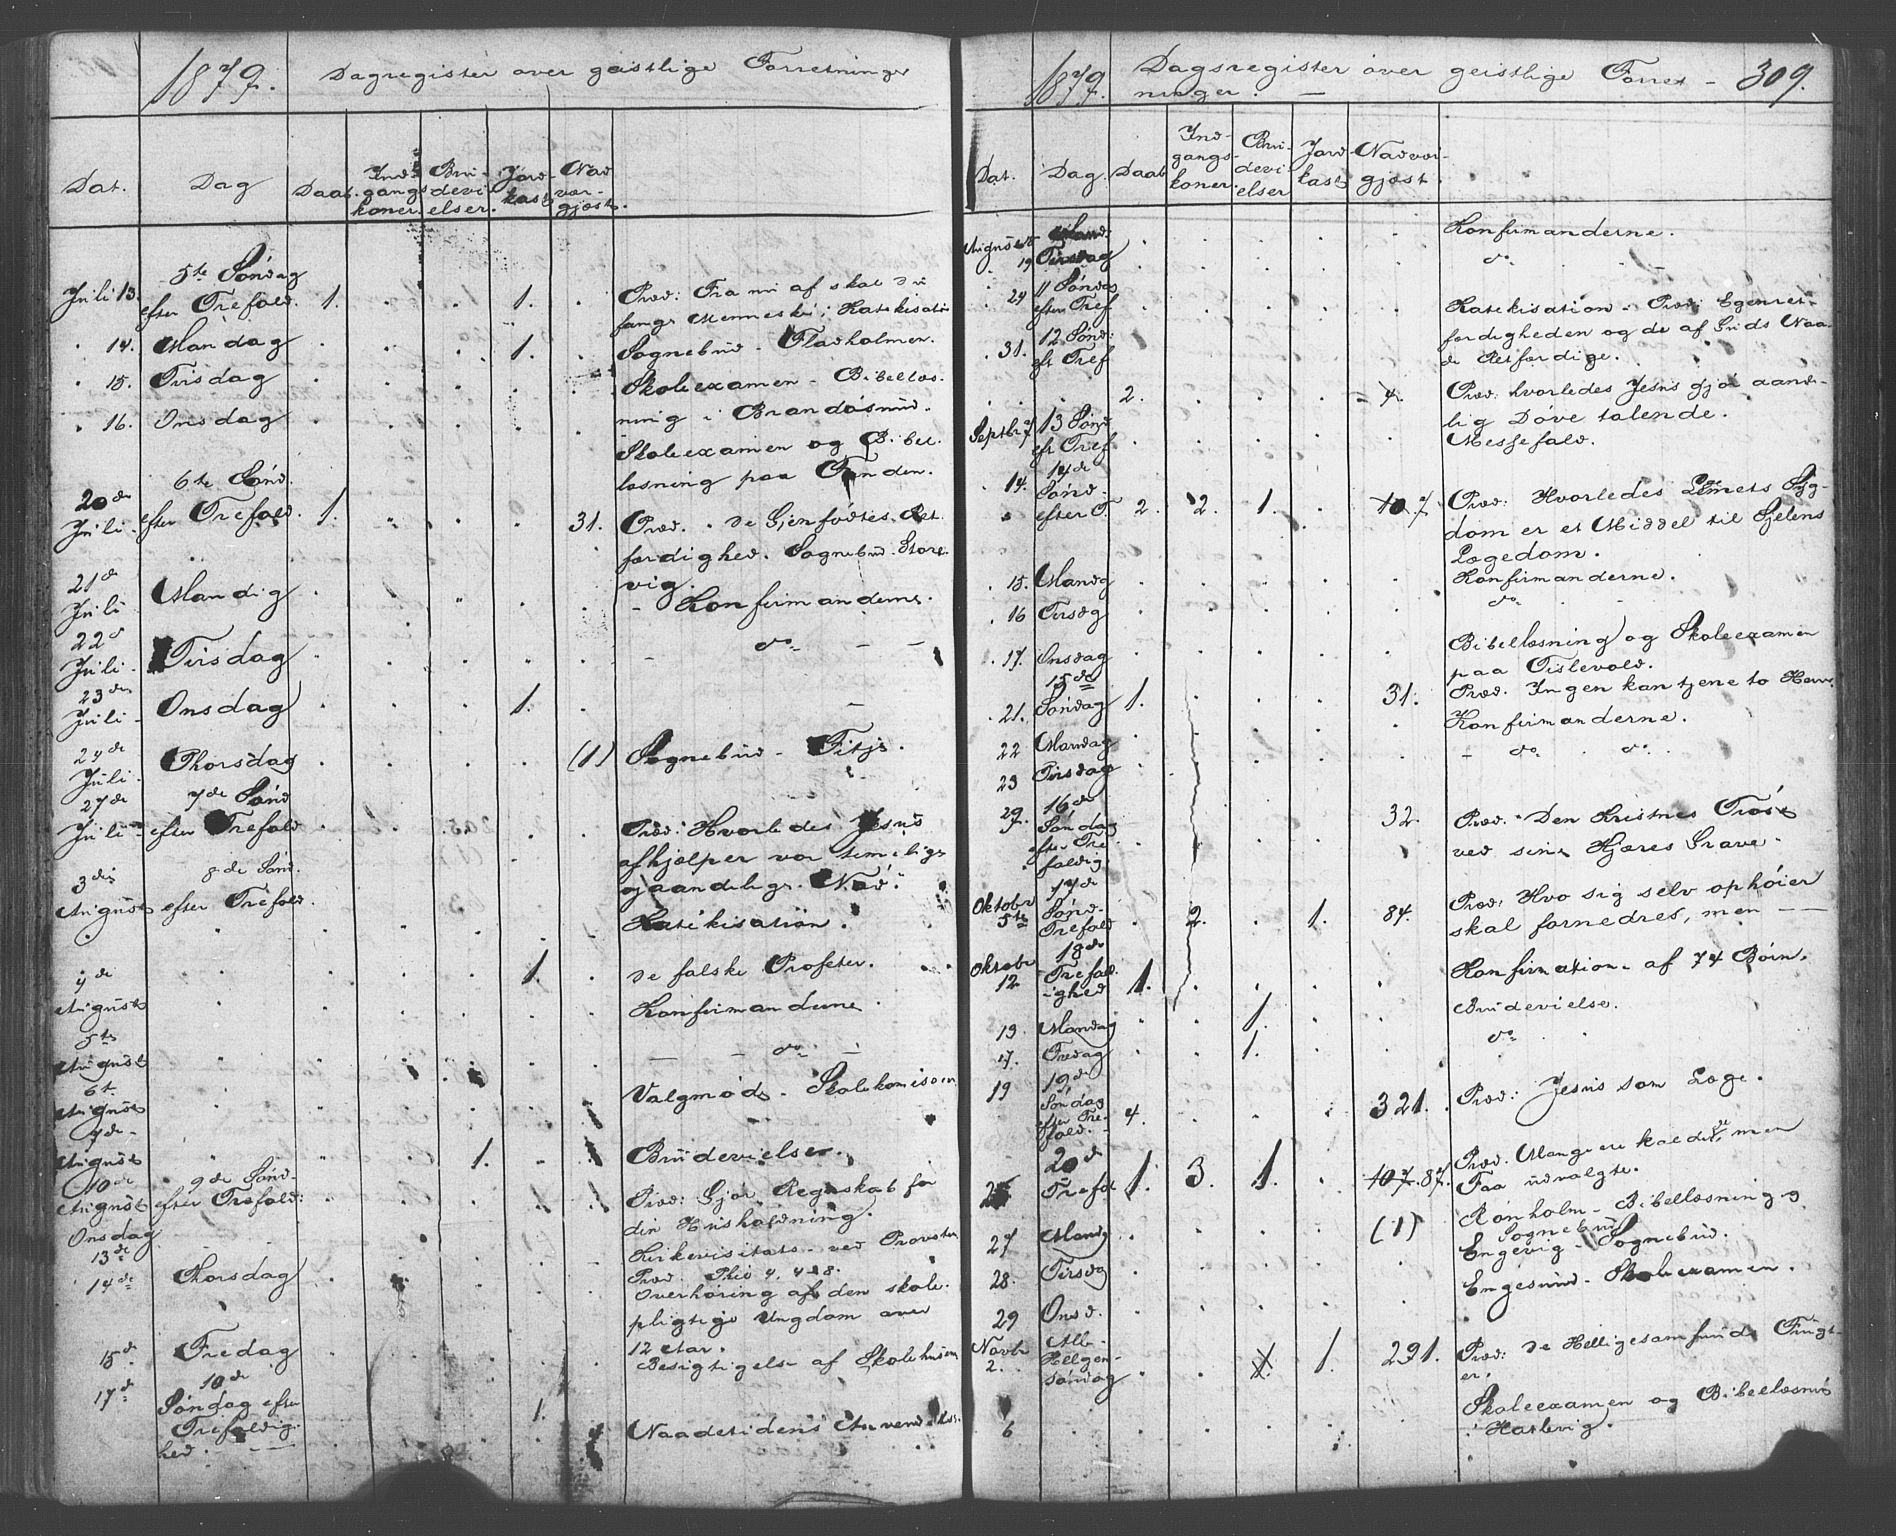 1879. Dagregister over geistlige Forretninger
Dat. Dag Daab. Ind-gangs koner. Bru-devi-elser. Jord-kast Nad vær-gjæst.
5te Søndag
Juli 13. efter Trefold. 1. 1. Præd: Fra nu af skal du
fange Mennesker; Katekisation
14. Mandag 1. Sognebud - Fladholmen.
15. Tirsdag Skoleexamen - Bibellæs-
16. Onsdag ning i Brandasund.
Skoleexamen og Bibel-
6te Sønd. læsning paa
20de Juli efter Trefold. 1. 31. Præd. De Gjenfødtes Ret
færdighed. Sognebud. Store-
vig.
21de Juli Mandag - Konfirmanderne.
22d Juli Tirsdag - do - -
23de Juli Onsdag 1. -
24de Juli Thorsdag (1) Sognebud - Fitje.
27de 7de Sønd
Juli efter Trefold Præd: Hvorledes Jesus
afhjælper vor timelige
og aandelige Nød.
3die 8de Sønd.
August efter Trefold. Katekisation.
1. de falske Profeter.
4de August Konfirmanderne.
5te August - - do -
6te August Valgmøde - Skolekomision
7de August 1. Brudevielser.
10de August 9de Sønd- efter Trefold: Præd: Gjør Regnskab for
din Husholdning.
Onsdag 13de Kirkevisitats - ved Provsten
Præd. 4, 4-8.
14de Thorsdag Overhøring af den skole-
pligtige Ungdom over
12 Aar.
15de Fredag Besigtigelse af Skolehusene
17de 10de Søndag efter Trefoldig-hed. 1. 4 Naadetidens Anvendelse.
1879. Dagsregister over geistlige Forret- 309.
ninger. -
Dat. Dag. Daab Ind-gangs-koner. Bru-devi-elser Jord-kast Nadvær-gjæst.
August 18 Mand. Konfirmanderne.
19 Tirsdag do
24 11 Søndag efter Tref Katekisation. Præd: Egenret-
færdigheden og de af Guds Naa-
31. 12 Sønd: eft Tref de Retfærdige.
2. 4. Præd: hvorledes Jesus gjør aande-
lig Døve talende.
Septbr 7 13 Sønd eft Tref Messefald.
14. 14de Sønd. efter T. 2. 2. 1. 10 7 Præd: Hvorledes Syg-
dom er et Middel til Sjelens
Lægedom.
15. Mandg Konfirmanderne.
16 Tirsdg do
17. Onsdag Bibellæsning og Skoleexamen
paa Tislevold.
21. 15de Søndag 1. 31. Præd. Ingen kan tjene to Herr.
22 Mandag Konfirmanderne.
23 Tirsdag - do do
16de Søndag efter Tre foldig. 32. Præd. Den Kristnes Trøst
ved sine Kjæres Grave.
Oktober 5te 17de Sønd. Trefold 2. 1. 84. Præd: Hvo sig selv ophøier
skal fornedres, men --
Oktober 12. 18de Trefold-ighed 1. Konfirmation - af 74 Børn.
13. Mandag 1. Brudevielse.
17. Fredag 1. do
19 19de Søndag efter Tre-fold. 4. 321. Præd: Jesus som Læge.
20de Trefol 1. 3. 1. 107. 87. Præd. Mange ere kaldede, men
Faa udvalgte.
27 Mandg (1) Rønholm - Bibellæsning og
Sognebud
28. Tirsdg Engevig - Sognebud.
29 Onsd. Engesund - Skoleexamen.
Novbr 2. Alle-Helgen-søndag 1. 1. 291. Præd: De Helligesamfunds Frugt-
er.
6 Skoleexamen og Bibellæsning
i Haalevig.